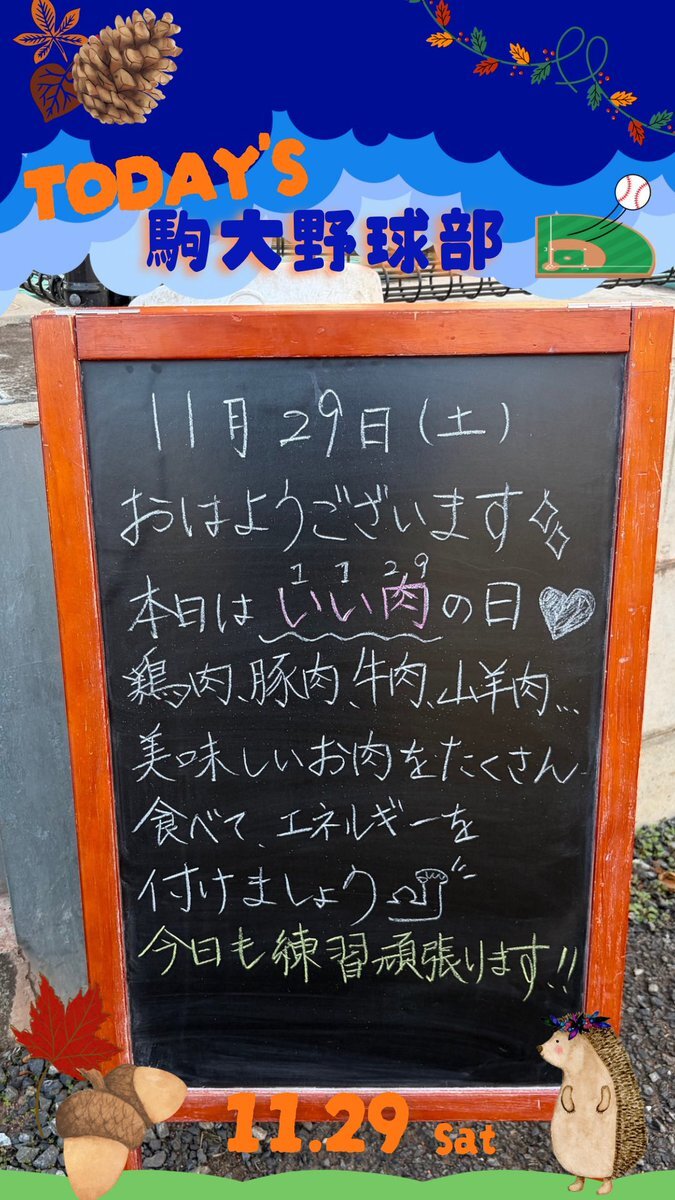 TODAY'S
駒大野球部
11月29日(土)
おはようございます
1 1 29
本日はいい肉の日
鶏肉、豚肉、牛肉、山羊肉...
美味しいお肉をたくさん
食べて、エネルギーを
付けましょう
今日も練習頑張ります!!
11.29 Sat